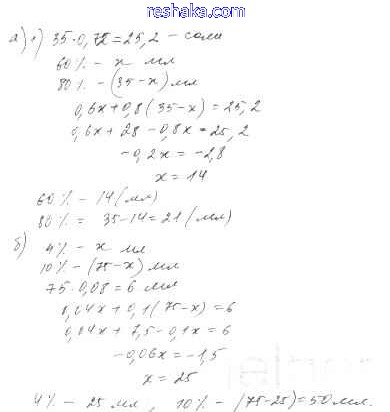 reshaka.com
а) 1) 35·0,72=25,2 – соли
60% – x мл
80% – (35–x) мл
0,6x+0,8(35–x)=25,2
0,6x+28–0,8x=25,2
–0,2x=–2,8
x=14
60% – 14 (мл)
80% = 35–14=21 (мл)
б) 4% – x мл
10% – (75–x) мл
75·0,08=6 мл
0,04x+0,1(75–x)=6
0,04x+7,5–0,1x=6
–0,06x=–1,5
x=25
4% – 25 мл, 10% – (75–25)=50 мл.